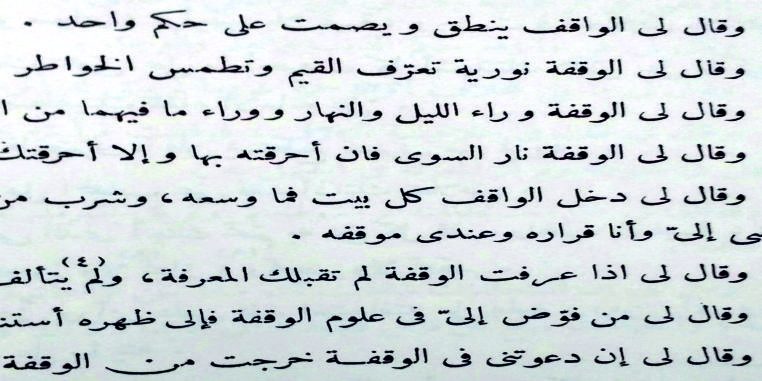 وقال لى الواقف ينطق ويصمت على حكم واحد .
وقال لى الوقفة نورية تعرّف القيم وتطمس الخواطر
وقال لى الوقفة وراء الليل والنهار ووراء ما فيهما من
وقال لى الوقفة نار السوى فان أحرقته بها وإلا أحرقتك
وقال لى دخل الواقف كل بيت فما وسعه، وشرب من
إلىّ وأنا قراره وعندى موقفه .
وقال لى اذا عرفت الوقفة لم تقبلك المعرفة، ولم(٤) يتألف
وقال لى من فوّض إلىّ فى علوم الوقفة فإلى ظهره
وقال لى إن دعوتنى فى الوقفة خرجت من الوقفة